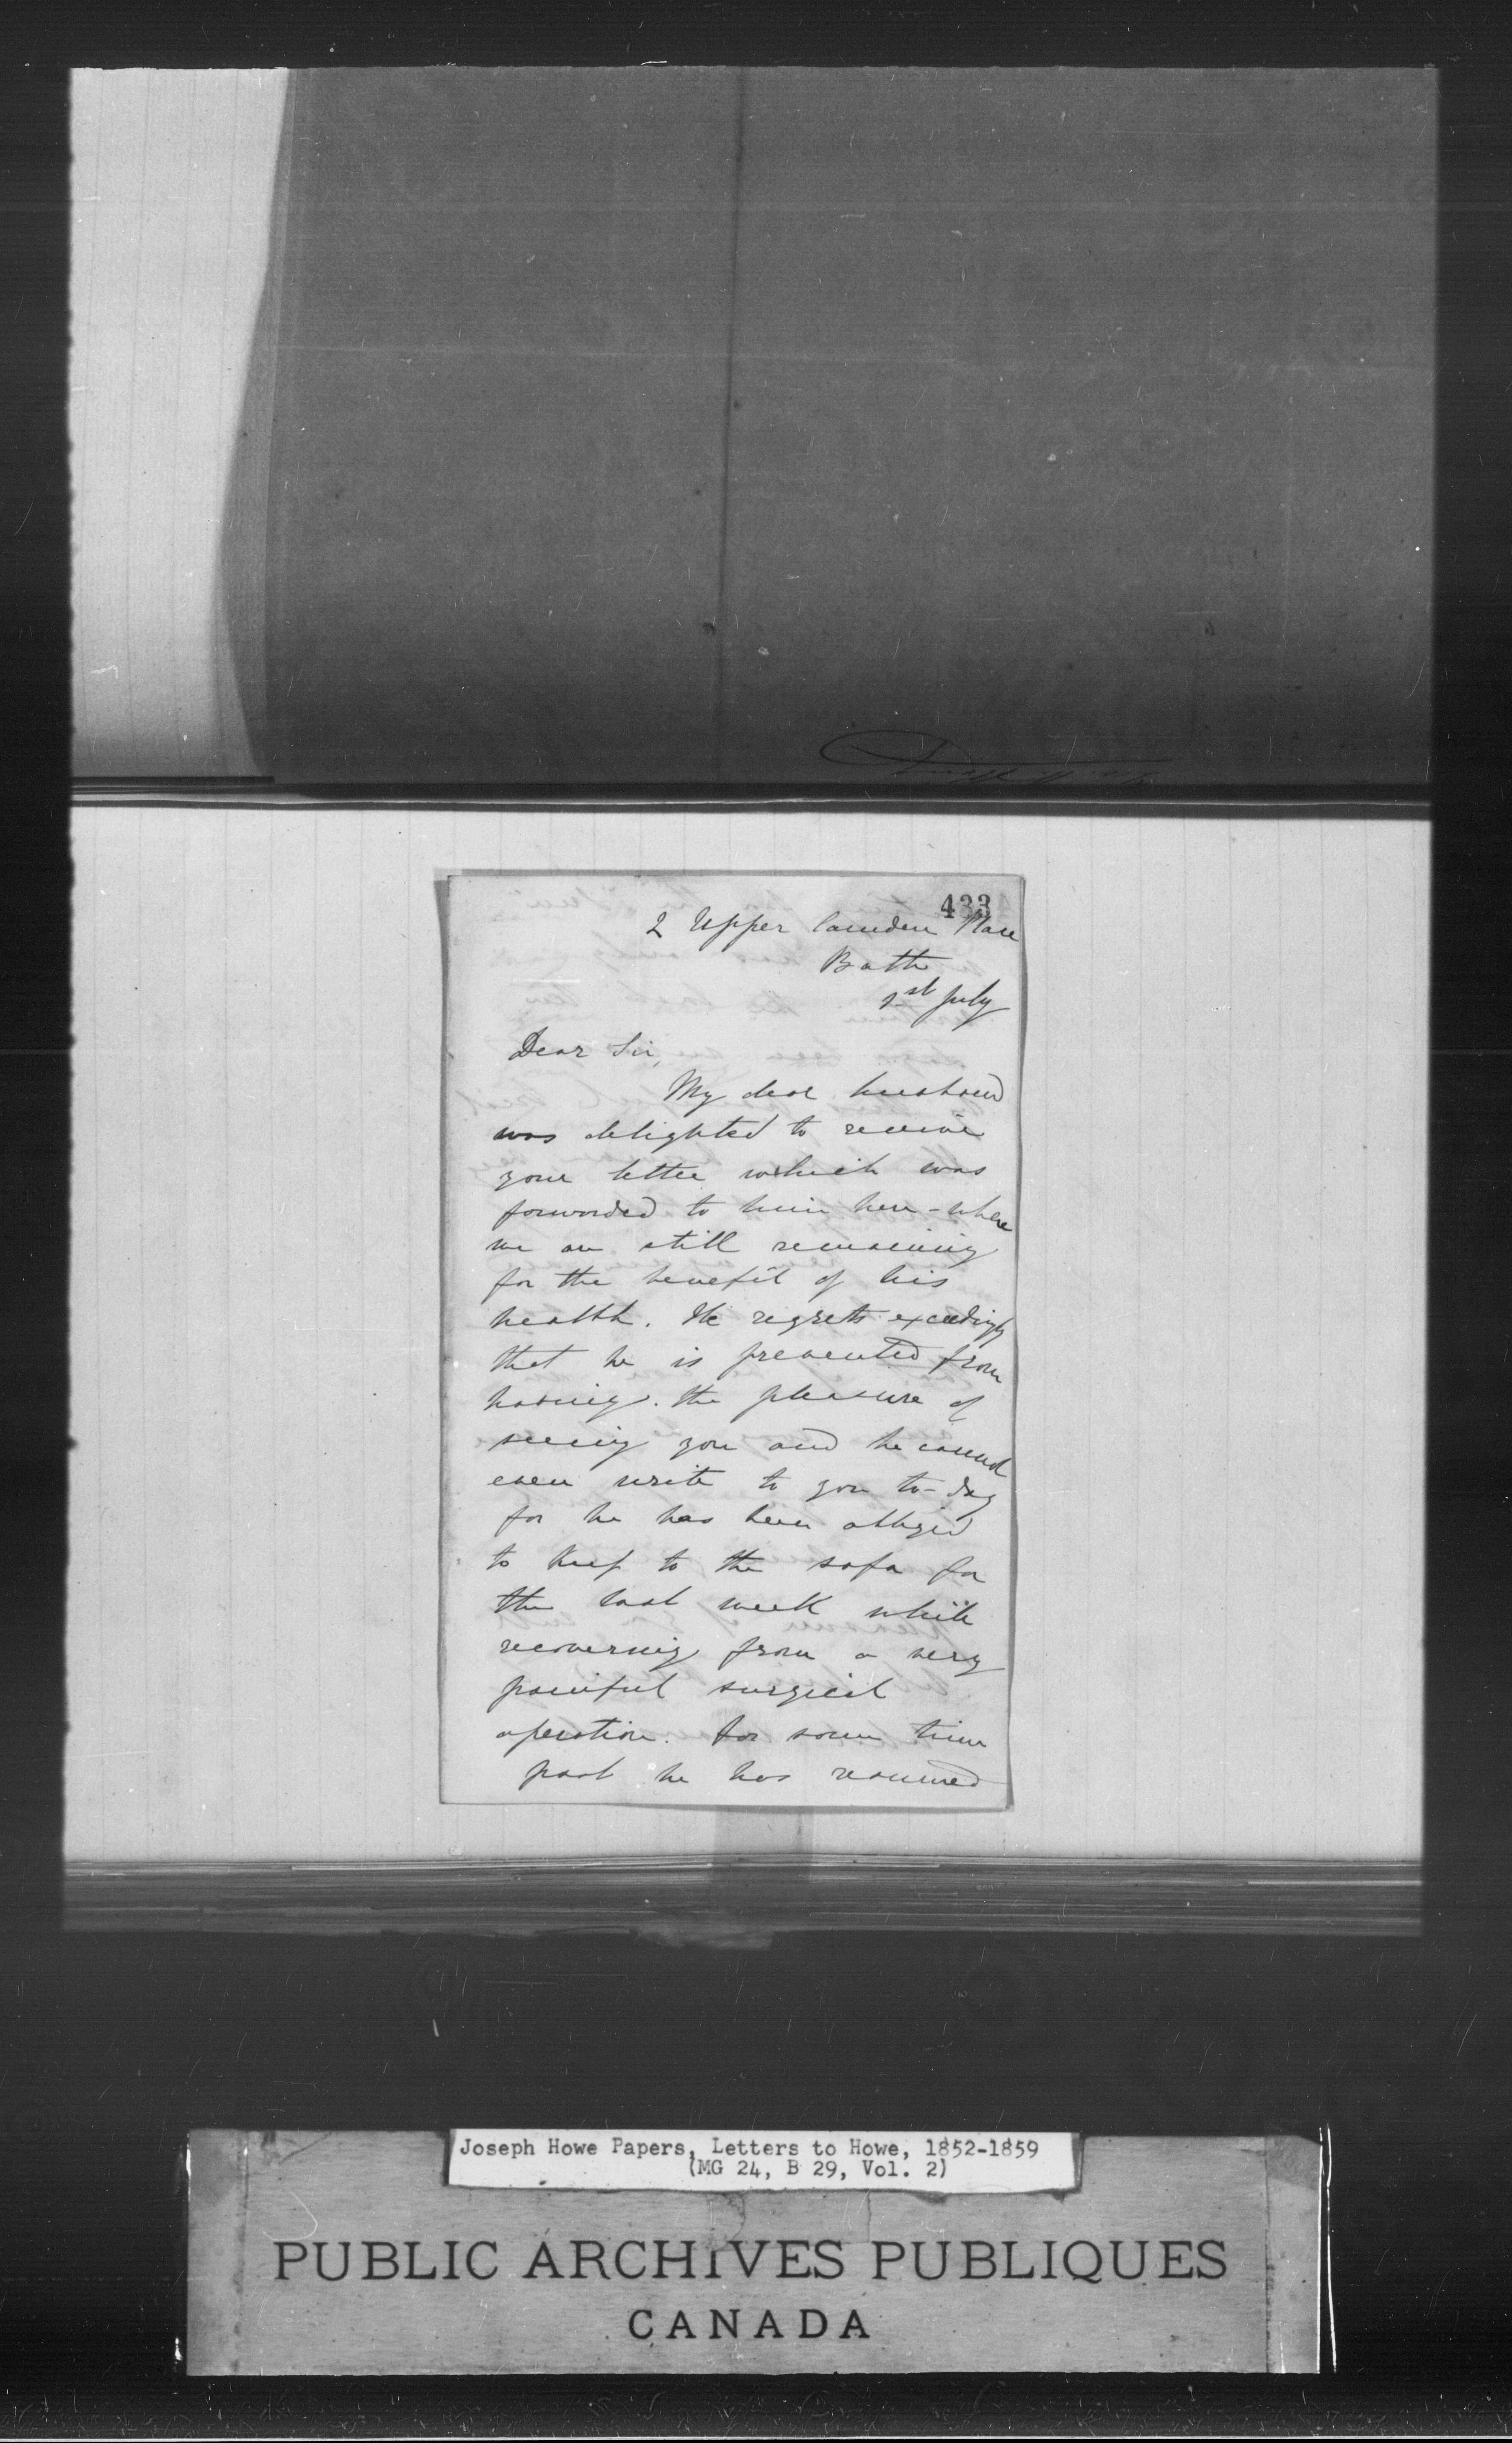 433
2 Upper Camden Place
Bath
1st July
Dear Sir,
My dear husband
was delighted to receive
your letter which was
forwarded to him here - where
we are still remaining
for the benefit of his
health. He regrets exceedingly
that he is prevented from
having the pleasure of
seeing you and he cannot
even write to you to-day
for he has been obliged
to keep to the sofa for
the last week while
recovering from a very
painful surgical
operation. For some time
past he has resumed
Joseph Howe Papers, Letters to Howe, 1852-1859
(MG 24, B 29, Vol. 2)
PUBLIC ARCHIVES PUBLIQUES
CANADA